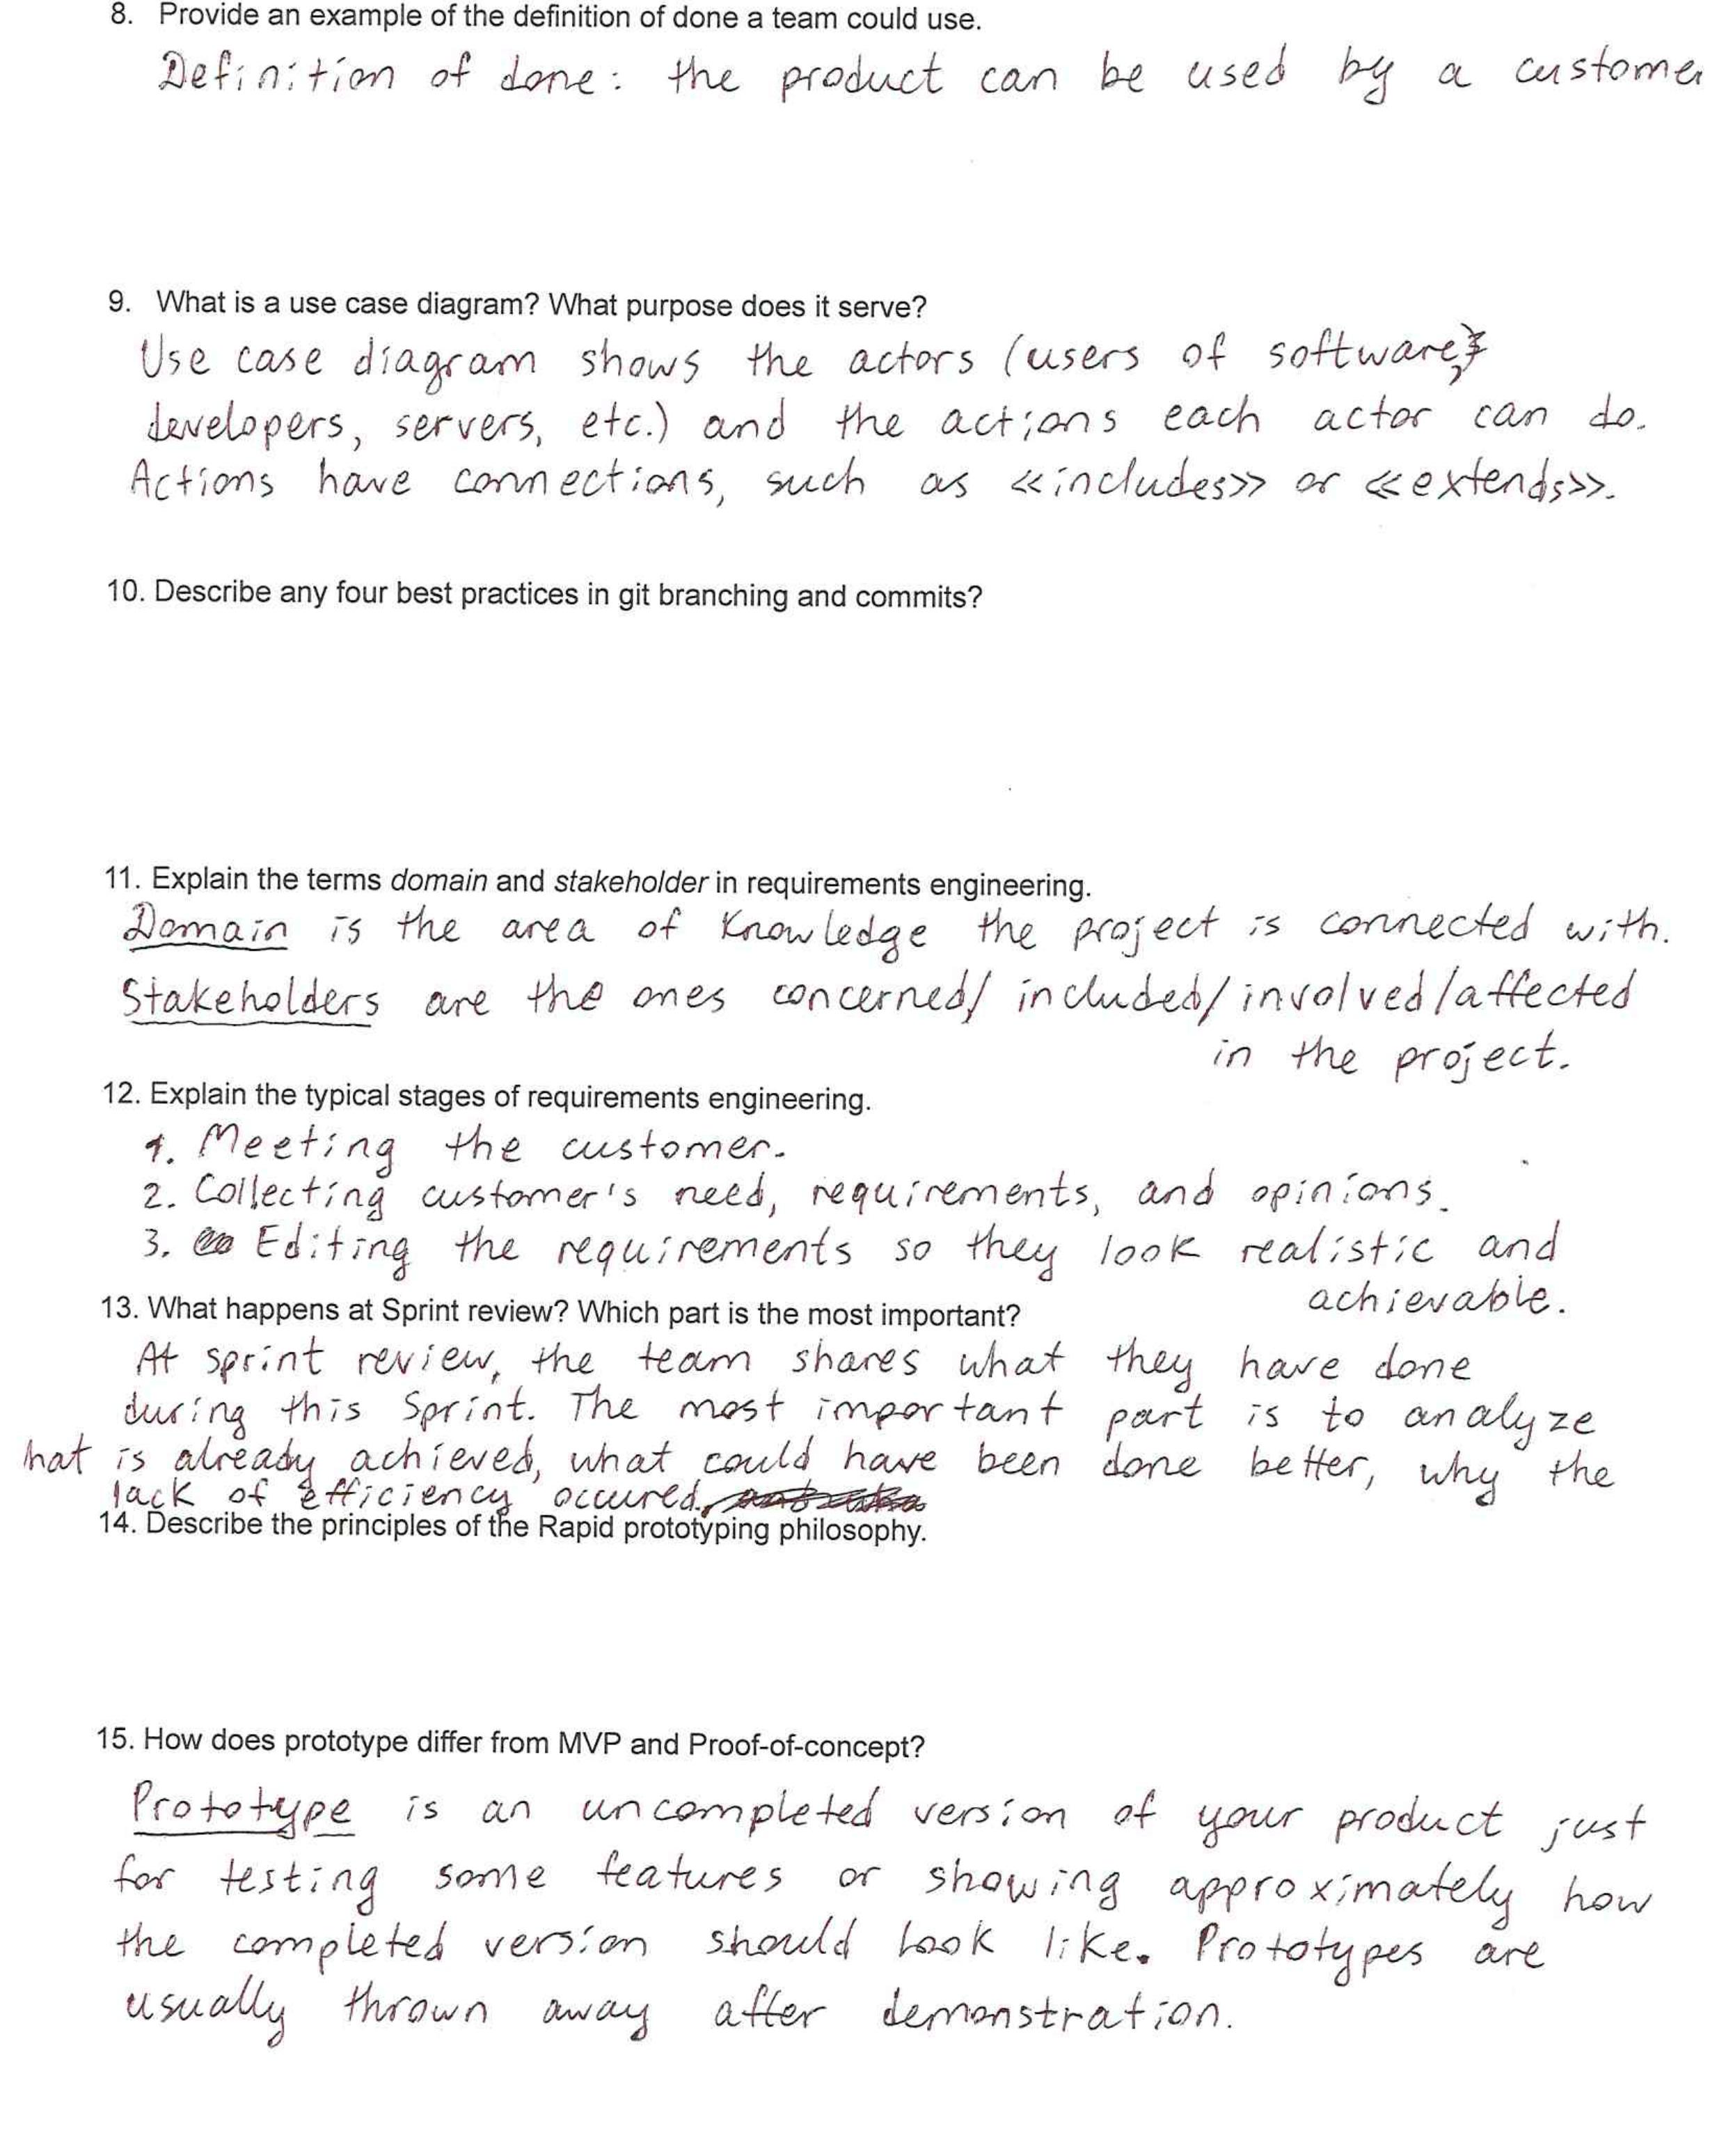 8. Provide an example of the definition of done a team could use.
Definition of done: the product can be used by a customer
9. What is a use case diagram? What purpose does it serve?
Use case diagram shows the actors (users of software,
developers, servers, etc.) and the actions each actor can do.
Actions have connections, such as <<includes>> or <<extends>>.
10. Describe any four best practices in git branching and commits?
11. Explain the terms domain and stakeholder in requirements engineering.
Domain is the area of knowledge the project is connected with.
Stakeholders are the ones concerned/ included/ involved/affected
in the project.
12. Explain the typical stages of requirements engineering.
1. Meeting the customer.
2. Collecting customer's need, requirements, and opinions.
3. Editing the requirements so they look realistic and
achievable.
13. What happens at Sprint review? Which part is the most important?
At sprint review, the team shares what they have done
during this Sprint. The most important part is to analyze
hat is already achieved, what could have been done better, why the
lack of efficiency occured.
14. Describe the principles of the Rapid prototyping philosophy.
15. How does prototype differ from MVP and Proof-of-concept?
Prototype is an uncompleted version of your product just
for testing some features or showing approximately how
the completed version should look like. Prototypes are
usually thrown away after demonstration.